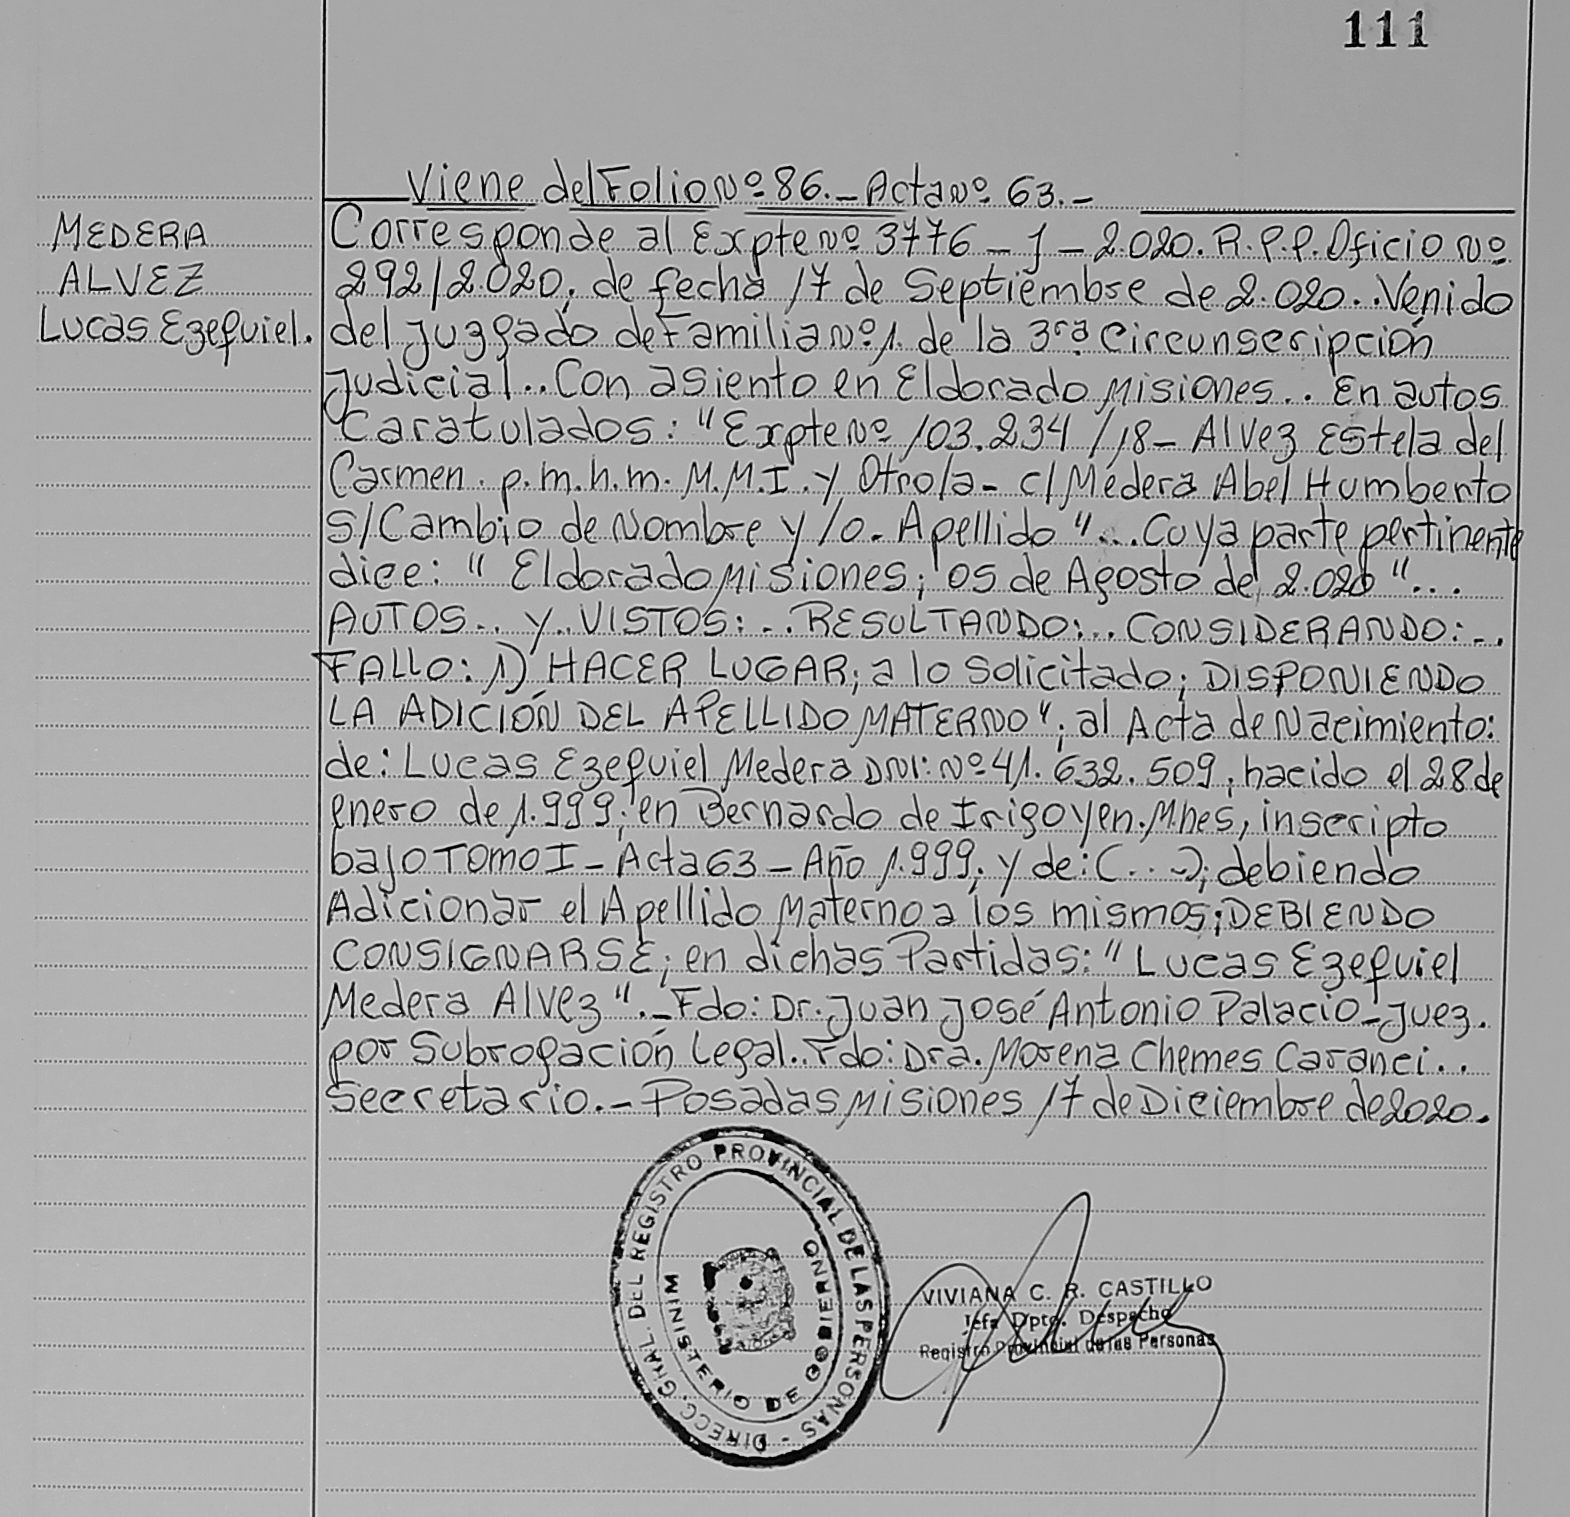 111
Viene del Folio Nº 86.- Acta Nº 63.-
MEDERA
ALVEZ
Lucas Ezequiel.
Corresponde al Expte Nº 3776-J-2.020. R.P.P. Oficio Nº
292/2.020, de fecha 17 de Septiembre de 2.020.. Venido
del Juzgado de Familia Nº 1. de la 3ra Circunscripción
Judicial.. Con asiento en Eldorado Misiones.. En autos
Caratulados: "Expte Nº 103.234/18- Alvez Estela del
Carmen. p.m.h.m. M.M.I. y Otro/a- c/ Medera Abel Humberto
S/Cambio de Nombre y/o. Apellido"... Cuya parte pertinente
dice: "Eldorado Misiones; 05 de Agosto de 2.020"...
AUTOS.. Y.. VISTOS:.. RESULTANDO:.. CONSIDERANDO:-..
FALLO: 1) HACER LUGAR; a lo Solicitado; DISPONIENDO
LA ADICIÓN DEL APELLIDO MATERNO"; al Acta de Nacimiento:
de: Lucas Ezequiel Medera DNI: Nº 41.632.509, nacido el 28 de
enero de 1.999; en Bernardo de Irigoyen. Mnes, inscripto
bajo Tomo I- Acta 63- Año 1.999; y de: (...); debiendo
Adicionar el Apellido Materno a los mismos; DEBIENDO
CONSIGNARSE; en dichas Partidas: "Lucas Ezequiel
Medera Alvez".- Fdo: Dr. Juan José Antonio Palacio- Juez.
por Subrogación Legal.. Fdo: Dra. Morena Chemes Caranci..
Secretario.- Posadas Misiones 17 de Diciembre de 2020.
DIRECC. GRAL. DEL REGISTRO PROVINCIAL DE LAS PERSONAS -
MINISTERIO DE GOBIERNO
VIVIANA C. R. CASTILLO
Jefa Dpto. Despacho
Registro Provincial de las Personas